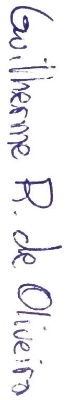 Guilherme R. de Oliveira